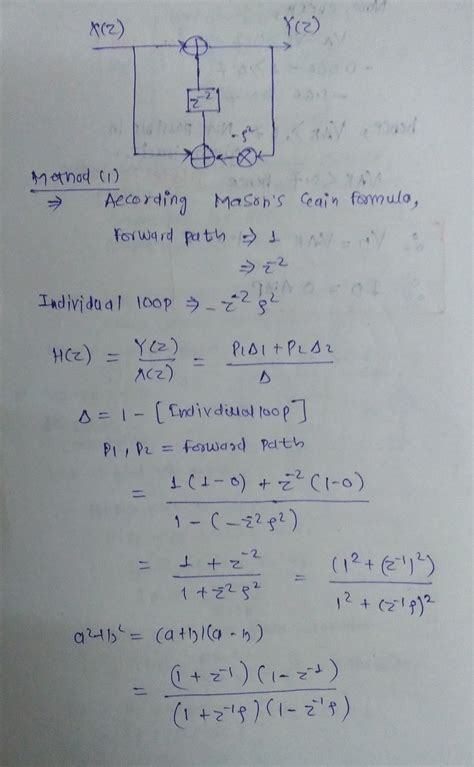 X(z) Y(z)
z⁻²
-ρ²
Method (1)
⇒ According Mason's Gain formula,
forward path ⇒ 1
⇒ z⁻²
Individual loop ⇒ -z⁻²ρ²
H(z) = Y(z)/X(z) = (P1Δ1 + P2Δ2)/Δ
Δ = 1 - [Individual loop]
P1, P2 = forward path
= (1(1-0) + z⁻²(1-0))/(1-(-z⁻²ρ²))
= (1 + z⁻²)/(1 + z⁻²ρ²) = (1² + (z⁻¹)²)/(1² + (z⁻¹ρ)²)
a²+b² = (a+b)(a-b)
= ((1+z⁻¹)(1-z⁻¹))/((1+z⁻¹ρ)(1-z⁻¹ρ))